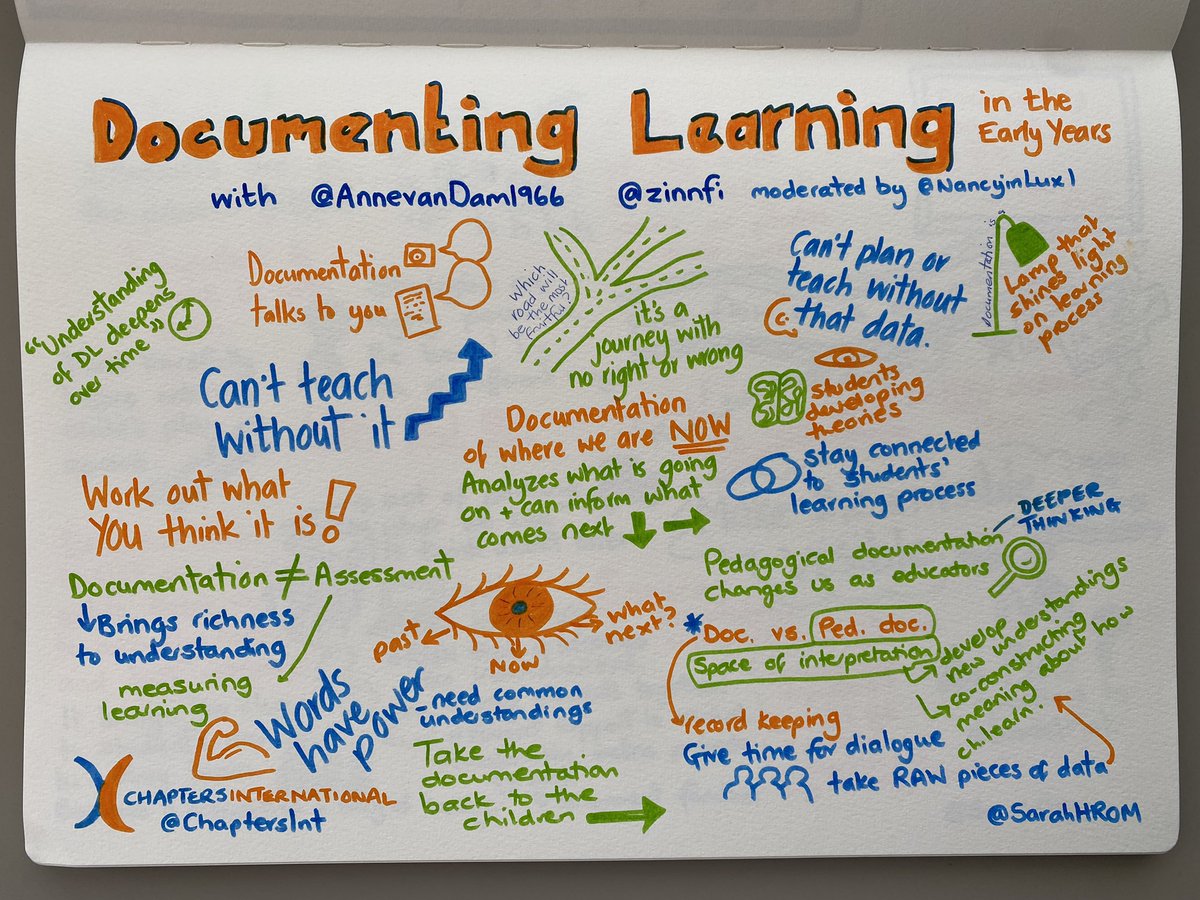 Documenting Learning in the
Early Years
with @AnnevanDam1966 @zinnfi moderated by @NancyinLux1
"Understanding
of DL deepens
over time"
Documentation
talks to you
Which
road will
be the most
fruitful?
it's a
journey with
no right or wrong
Can't plan or
teach without
that data.
documentation is a
Lamp that
shines light
on learning
process
Can't teach
without it
Documentation
of where we are NOW
Analyzes what is going
on + can inform what
comes next
students
developing
theories
stay connected
to students'
learning process
Work out what
YOU think it is!
DEEPER
THINKING
Pedagogical documentation
changes us as educators
Documentation ≠ Assessment
Brings richness
to understanding
measuring
learning
past
NOW
what
next?
Words
have
power
-need common
understandings
*Doc. vs. Ped. doc.
Space of interpretation
develop
new understandings
co-constructing
meaning about how
ch. learn.
record keeping
Give time for dialogue
take RAW pieces of data
Take the
documentation
back to the
children
CHAPTERSINTERNATIONAL
@ChaptersInt
@SarahHROM